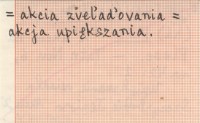 = akcia zveľaďovania =
akcja upiększania.